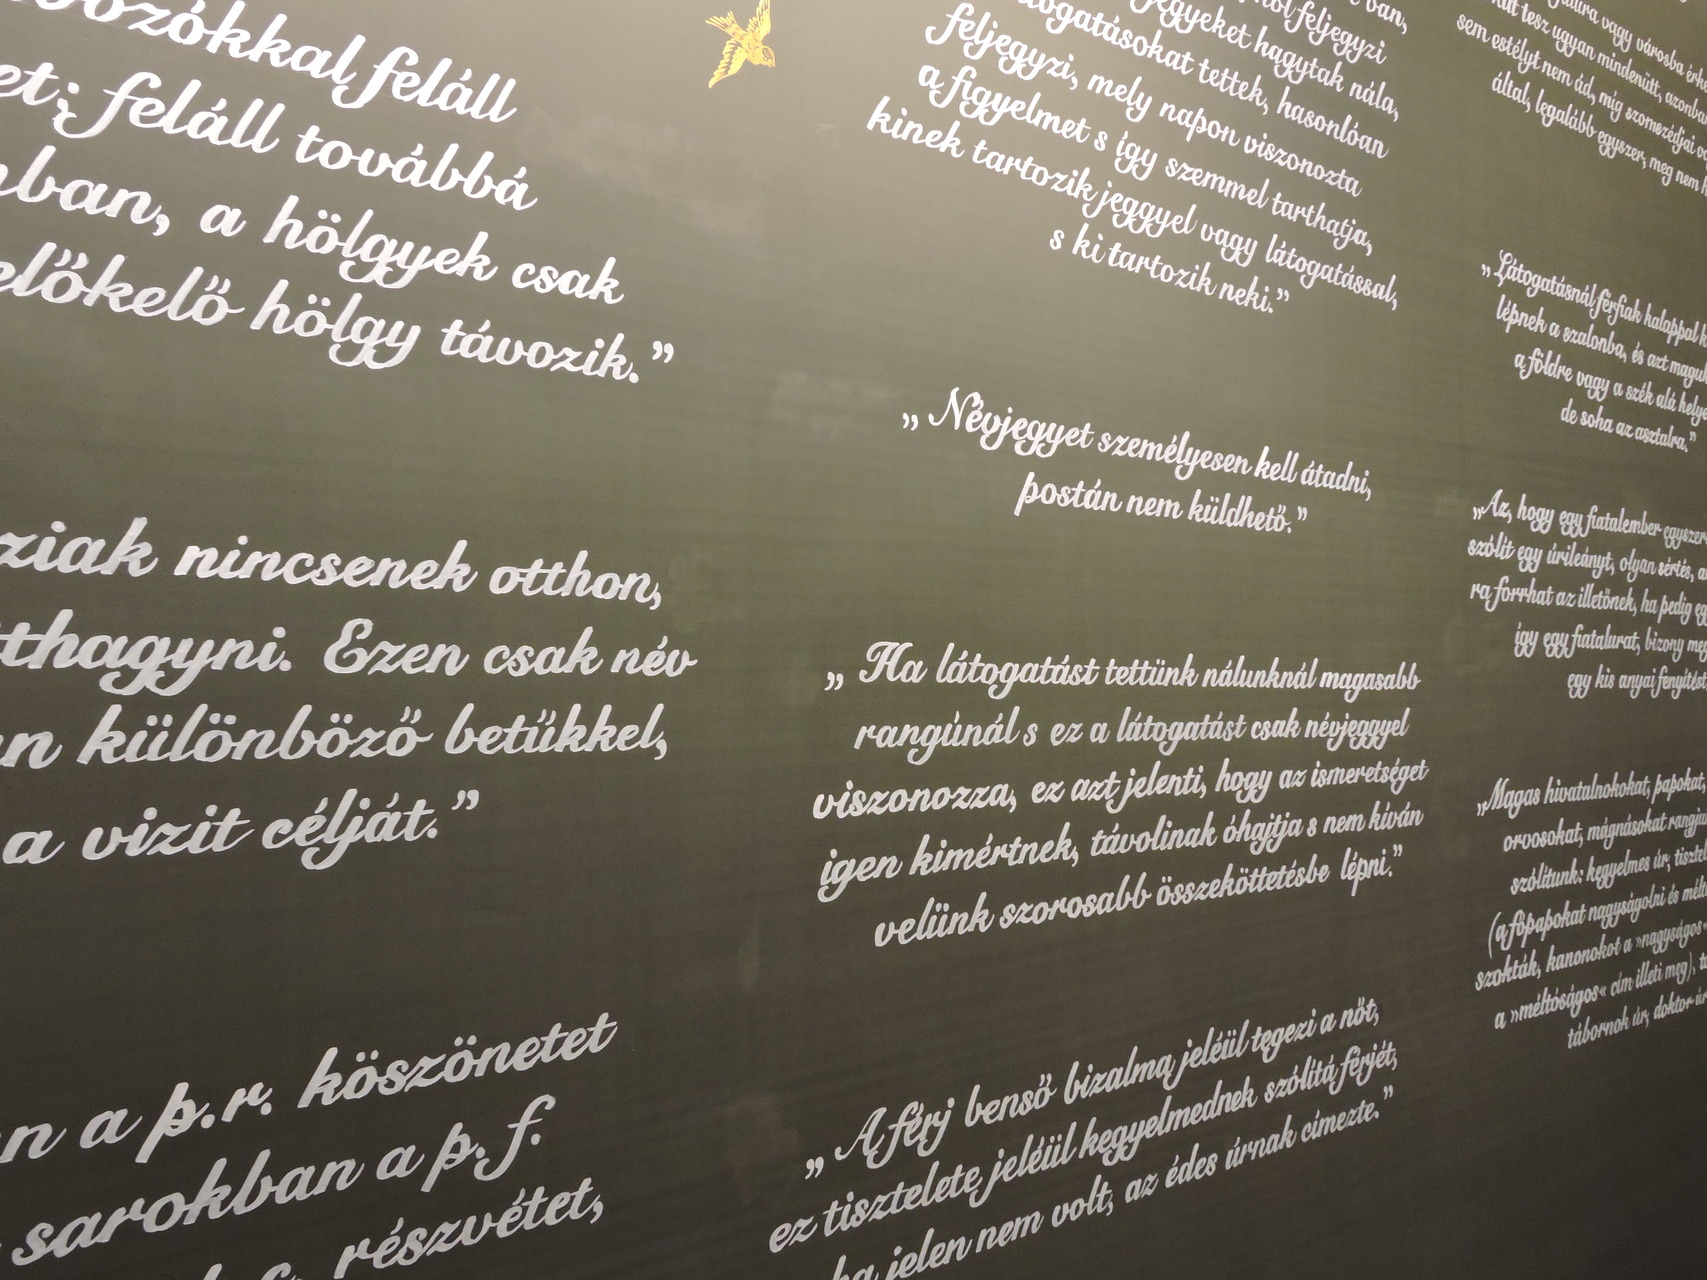 felállll
felálll továbbá
a hölgyek csak
előkelő hölgy távozik.”
nincsenek otthon,
Ezen csak név
különböző betűkkel,
a vizit célját.”
a p.r. köszönetet
sarokban a p.f.
részvétet,
feljegyzi
hagytak nála,
tettek, hasonlóan
feljegyzi, mely napon viszonozta
a figyelmet s így szemmel tarthatja,
kinek tartozik jeggyel vagy látogatással,
s ki tartozik neki.”
„Névjegyet személyesen kell átadni,
postán nem küldhető.”
„Ha látogatást tettünk nálunknál magasabb
rangúnál s ez a látogatást csak névjeggyel
viszonozza, ez azt jelenti, hogy az ismeretséget
igen kimértnek, távolinak óhajtja s nem kíván
velünk szorosabb összeköttetésbe lépni.”
„A férj benső bizalma jeléül tegezi a nőt,
ez tisztelete jeléül kegyelmednek szólítá férjét,
ha jelen nem volt, az édes úrnak címezte.”
vagy városba
tesz ugyan mindenütt, azonban
sem estélyt nem ád, míg szomszédjai
által, legalább egyszer, meg nem
„Látogatásnál férfiak kalappal
lépnek a szalonba, és azt
a földre vagy a szék alá
de soha az asztalra.”
„Az, hogy egy fiatalember
szólít egy úrileányt, olyan sértés,
ra forrhat az illetőnek, ha pedig
így egy fiatalurat, bizony
egy kis anyai
„Magas hivatalnokokat, papokat,
orvosokat, mágnásokat
szólítunk: kegyelmes úr,
(a főpapokat nagyságolni és
szokták, kanonokot a »nagyságos«
a »méltóságos« cím illeti meg),
tábornok úr, doktor